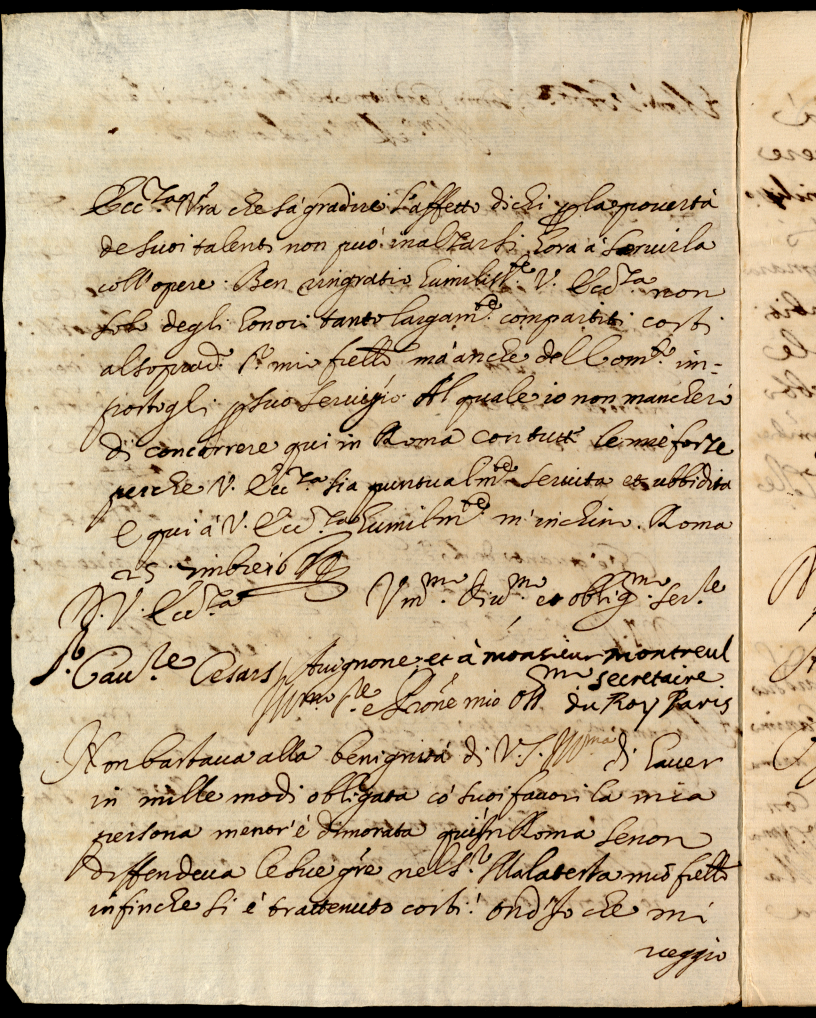 Ecc.za V'ra che sà gradire l'affetto di chi p la povertà
de suoi talenti non può inalzarsi hora à servirla
coll'opere. Ben ringratio humiliss.te V. Ecc.za non
solo degli honori tanto largam.te compartiti costi
al soprad.o S.r mio frello mà anche dell com.do im=
postogli p suo servigio. Al quale io non mancherò
di concorrere qui in Roma con tutte le mie forze
perche V. Ecc.za sia puntualm.te servita et ubbidita
E qui à V. Ecc.za humilm.te m'inchino. Roma
25 mbre
D. V. Ecc.za Um.mo Div.mo et oblig.mo ser.le
S.r Cau.le Cesars Auignone et à monsieur montreul
secretaire
Ill.mo S.re e P'rone mio Oss.mo du Roy Paris
Non bastava alla benignità di V.S. Ill.ma di haver
in mille modi obligata cò suoi favori la mia
persona mentr'è dimorata quì in Roma se non
diffendeva le sue gre nel S.r Malatesta mio frello
infinche si è trattenuto costi. Ond'Io che mi
veggio